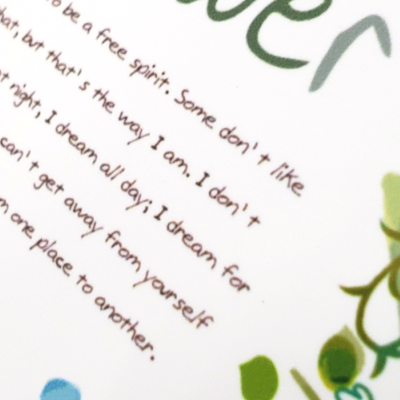 er
to be a free spirit. Some don't like
that, but that's the way I am. I don't
at night, I dream all day; I dream for
can't get away from yourself
one place to another.